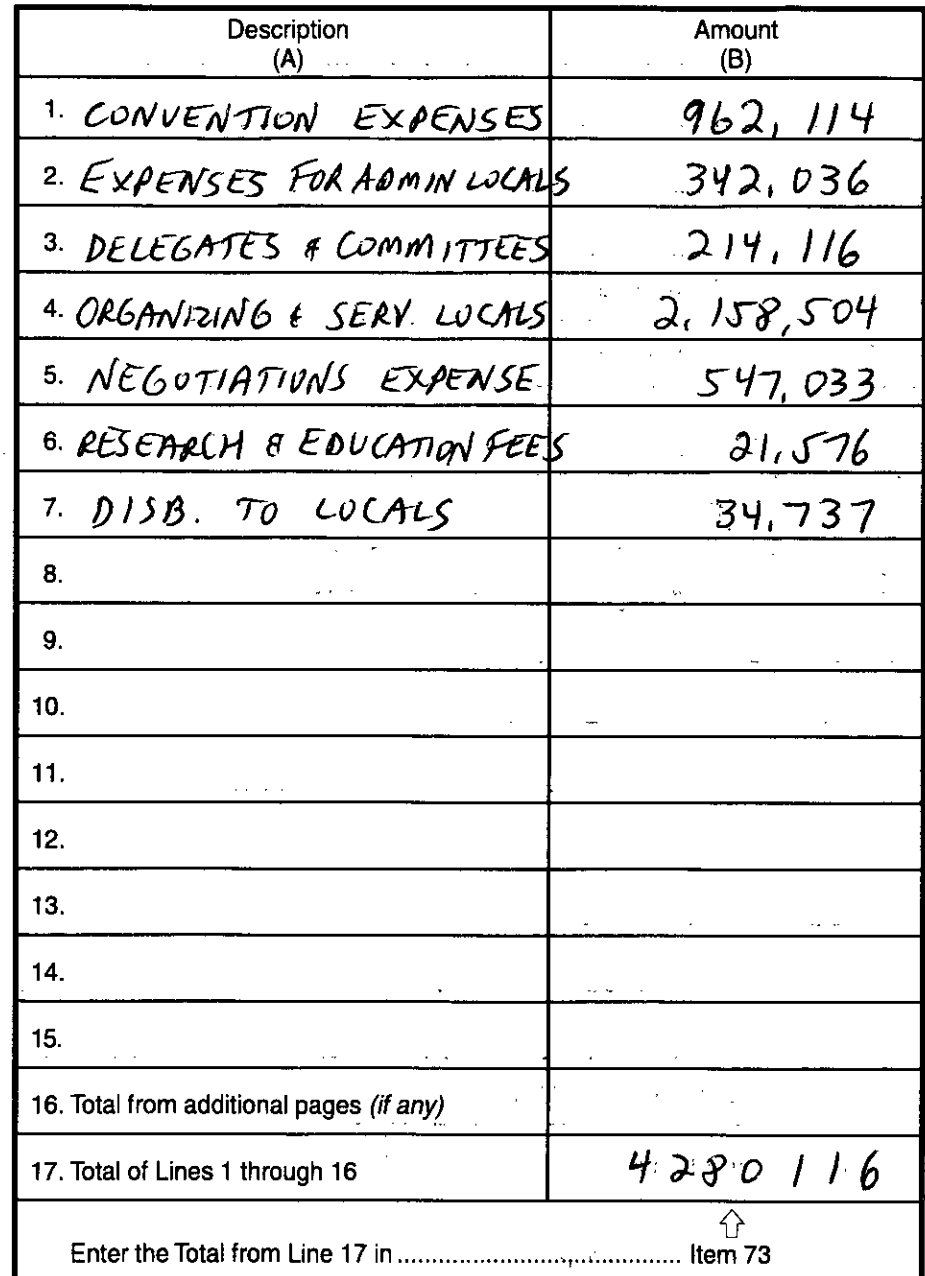 Description Amount
(A) (B)
1. CONVENTION EXPENSES 962,114
2. EXPENSES FOR ADMIN LOCALS 342,036
3. DELEGATES & COMMITTEES 214,116
4. ORGANIZING & SERV. LOCALS 2,158,504
5. NEGOTIATIONS EXPENSE 547,033
6. RESEARCH & EDUCATION FEES 21,576
7. DISB. TO LOCALS 34,737
8.
9.
10.
11.
12.
13.
14.
15.
16. Total from additional pages (if any)
17. Total of Lines 1 through 16 4280116
Enter the Total from Line 17 in ........................................ Item 73